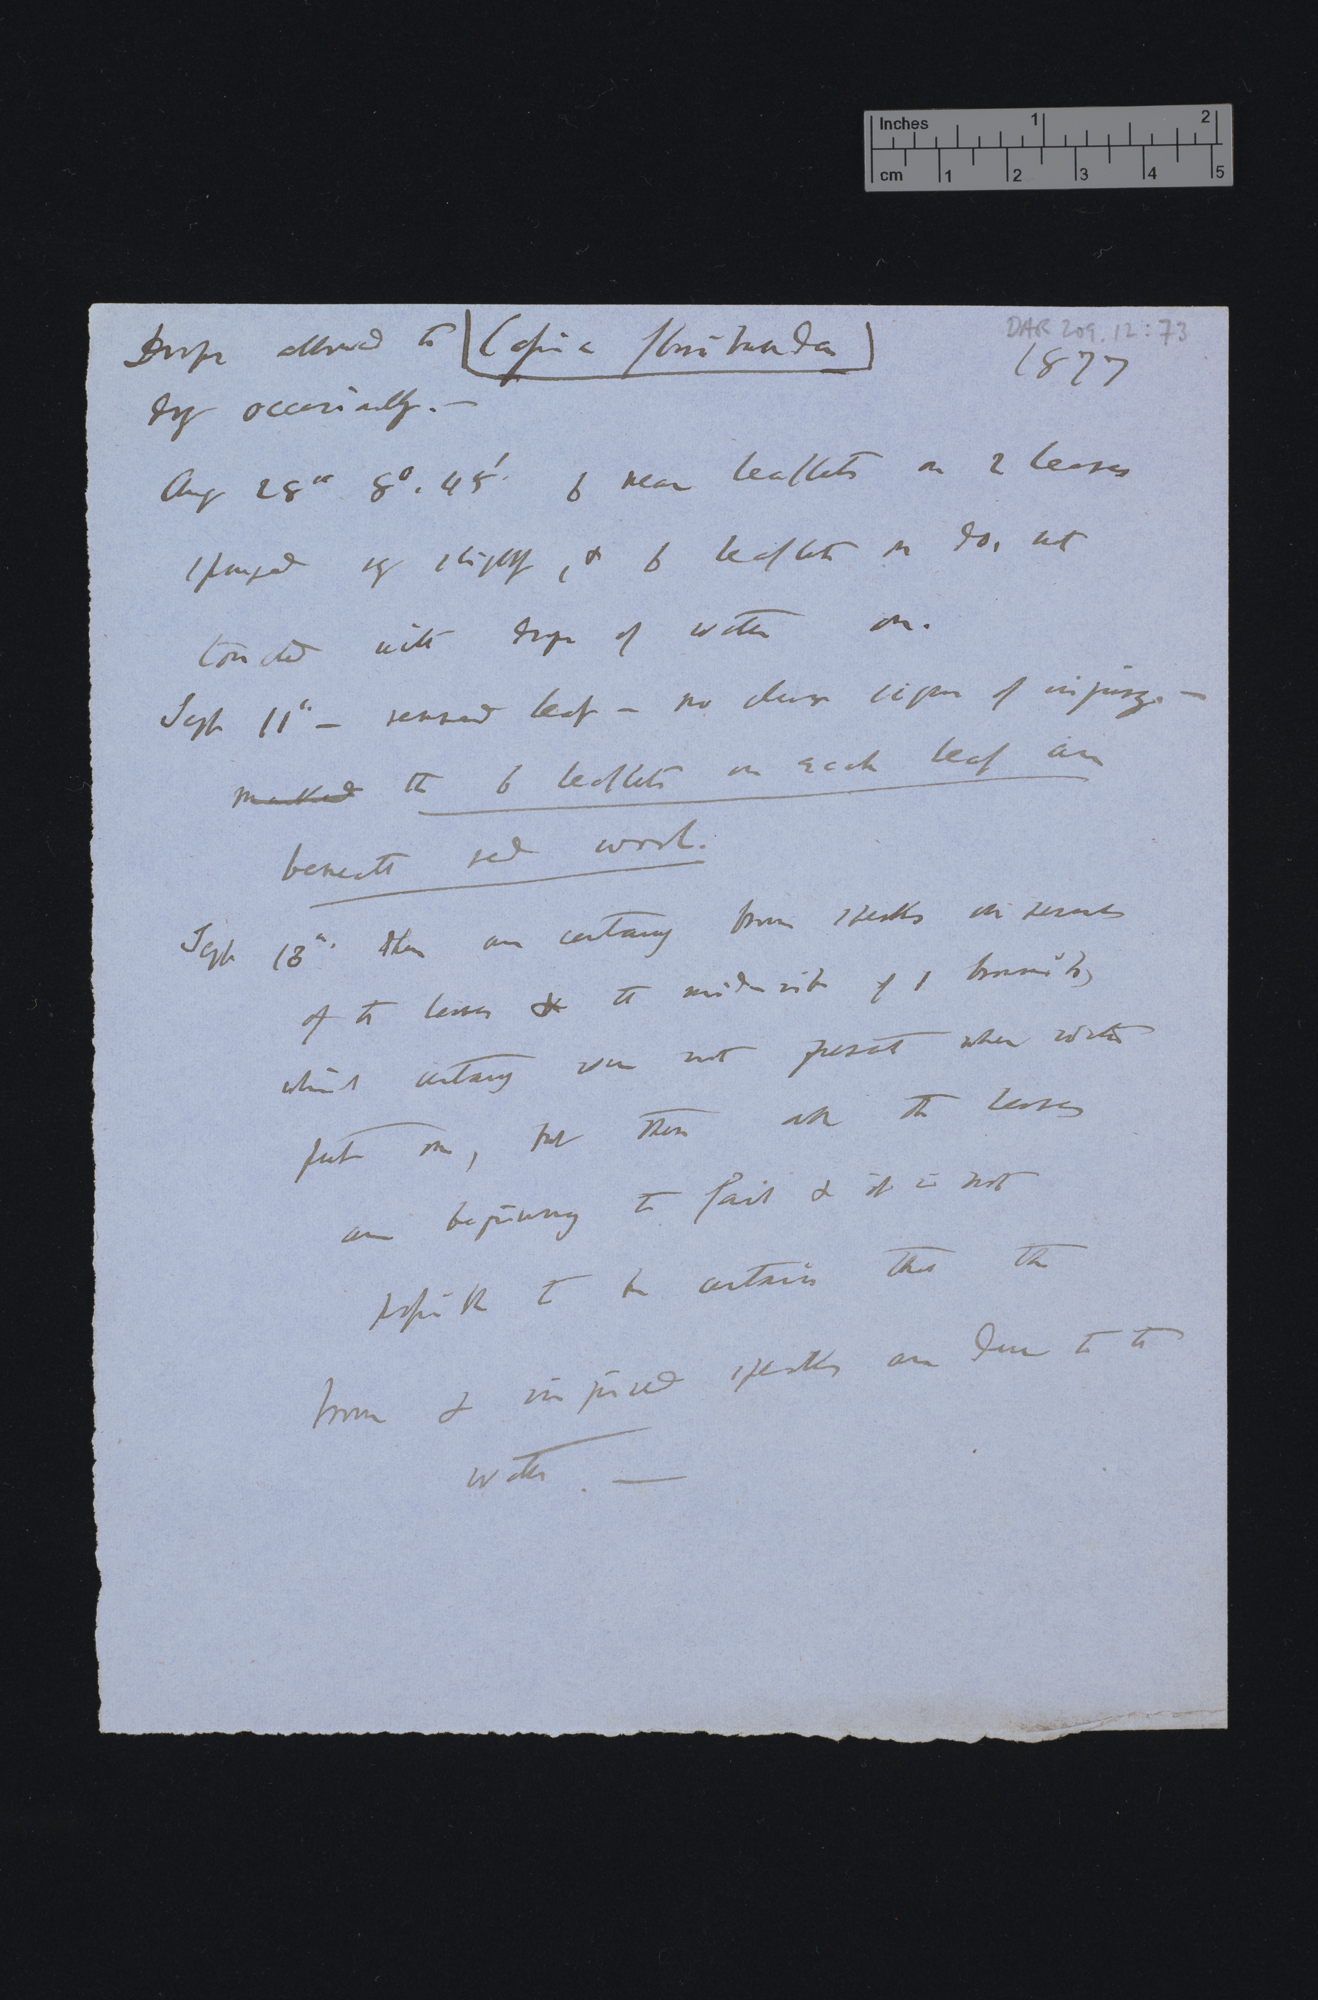 Inches 1 2
cm 1 2 3 4 5
DAR 209.12:73
Drops allowed to [Cassia floribunda] 1877
dry occasionally. —
Aug 28th 8°. 45'. 6 near leaflets on 2 leaves
sponged slightly, & 6 leaflets on do, not
touched with drops of water on.
Sept 11th — removed leaf — no clear signs of injury. —
marked the 6 leaflets on each leaf are
beneath red wool.
Sept 13th. there are certainly brown specks on
of the leaves & the midrib of 1 brownish,
which certainly were not present when water
put on, but then all the leaves
are beginning to fail & it is not
possible to be certain that the
brown & injured specks are due to the
water. —